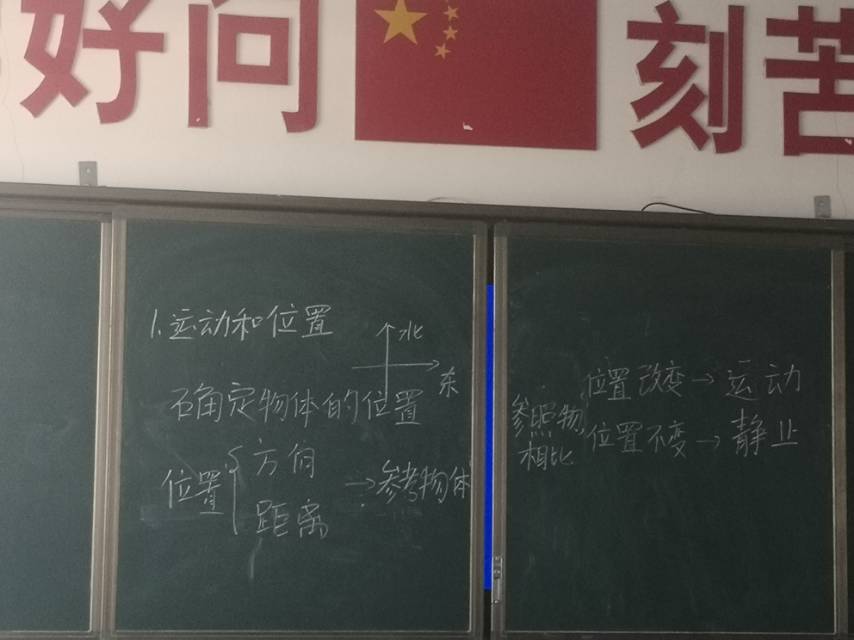 好问
刻苦
1.运动和位置
北
东
确定物体的位置
位置
方向
距离
→参考物体
参照物
相比
位置改变→运动
位置不变→静止